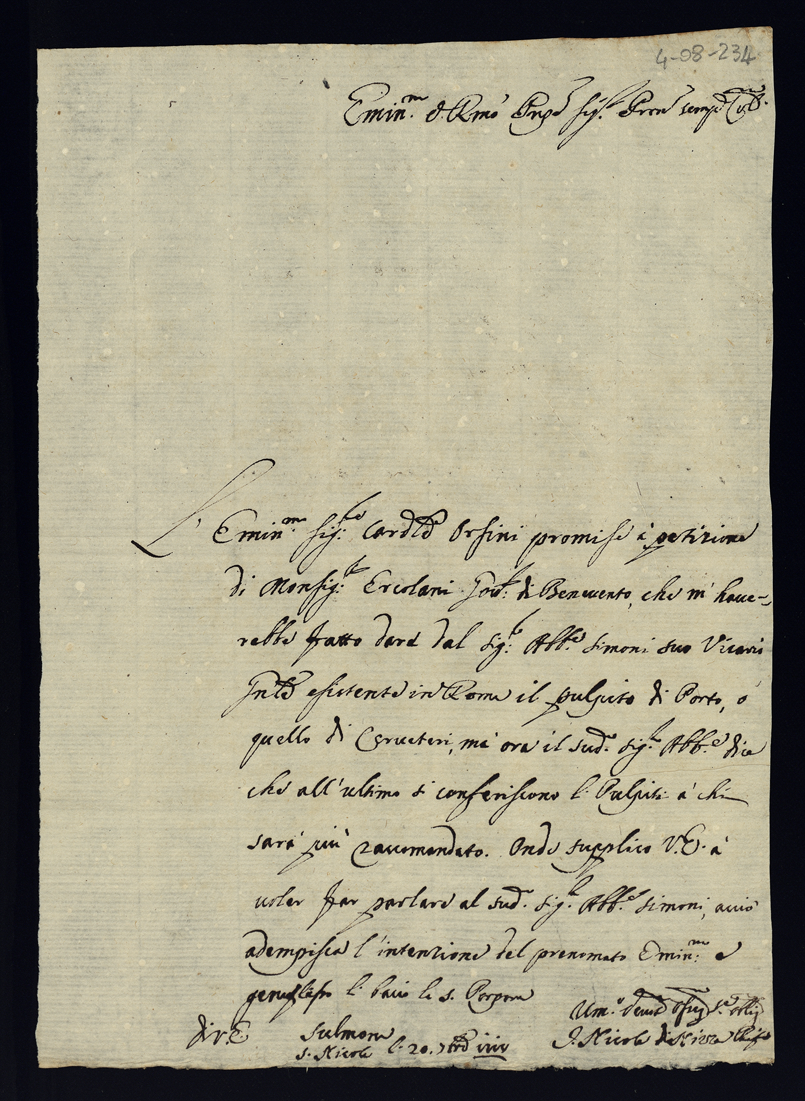 4-08-234
Emin.mo e Rmo Pnpe Sig.r Pron
L'Emin.mo Sig.re Card.le Orsini promise à petizione
di Monsig.r Ercolani Gov.r di Benevento, che m'have-
rebbe fatto dare dal Sig.r Abb.e Simoni suo Vicario
Gnle esistente in Roma il pulpito di Porto, ò
quello di Cerveteri, mà ora il sud.o Sig.r Abb.e dice
che all'ultimo si conferiscono li Pulpiti à chi
sarà più raccomandato. Onde supplico V.E. à
voler far parlare al sud.o Sig.r Abb.e Simoni, acciò
adempisca l'intenzione del prenomato Emin.mo e
genuflesso li bacio la S. Porpora
di V.E. Sulmona
S. Nicola li 20. 7bre
Um.o
Nicola di